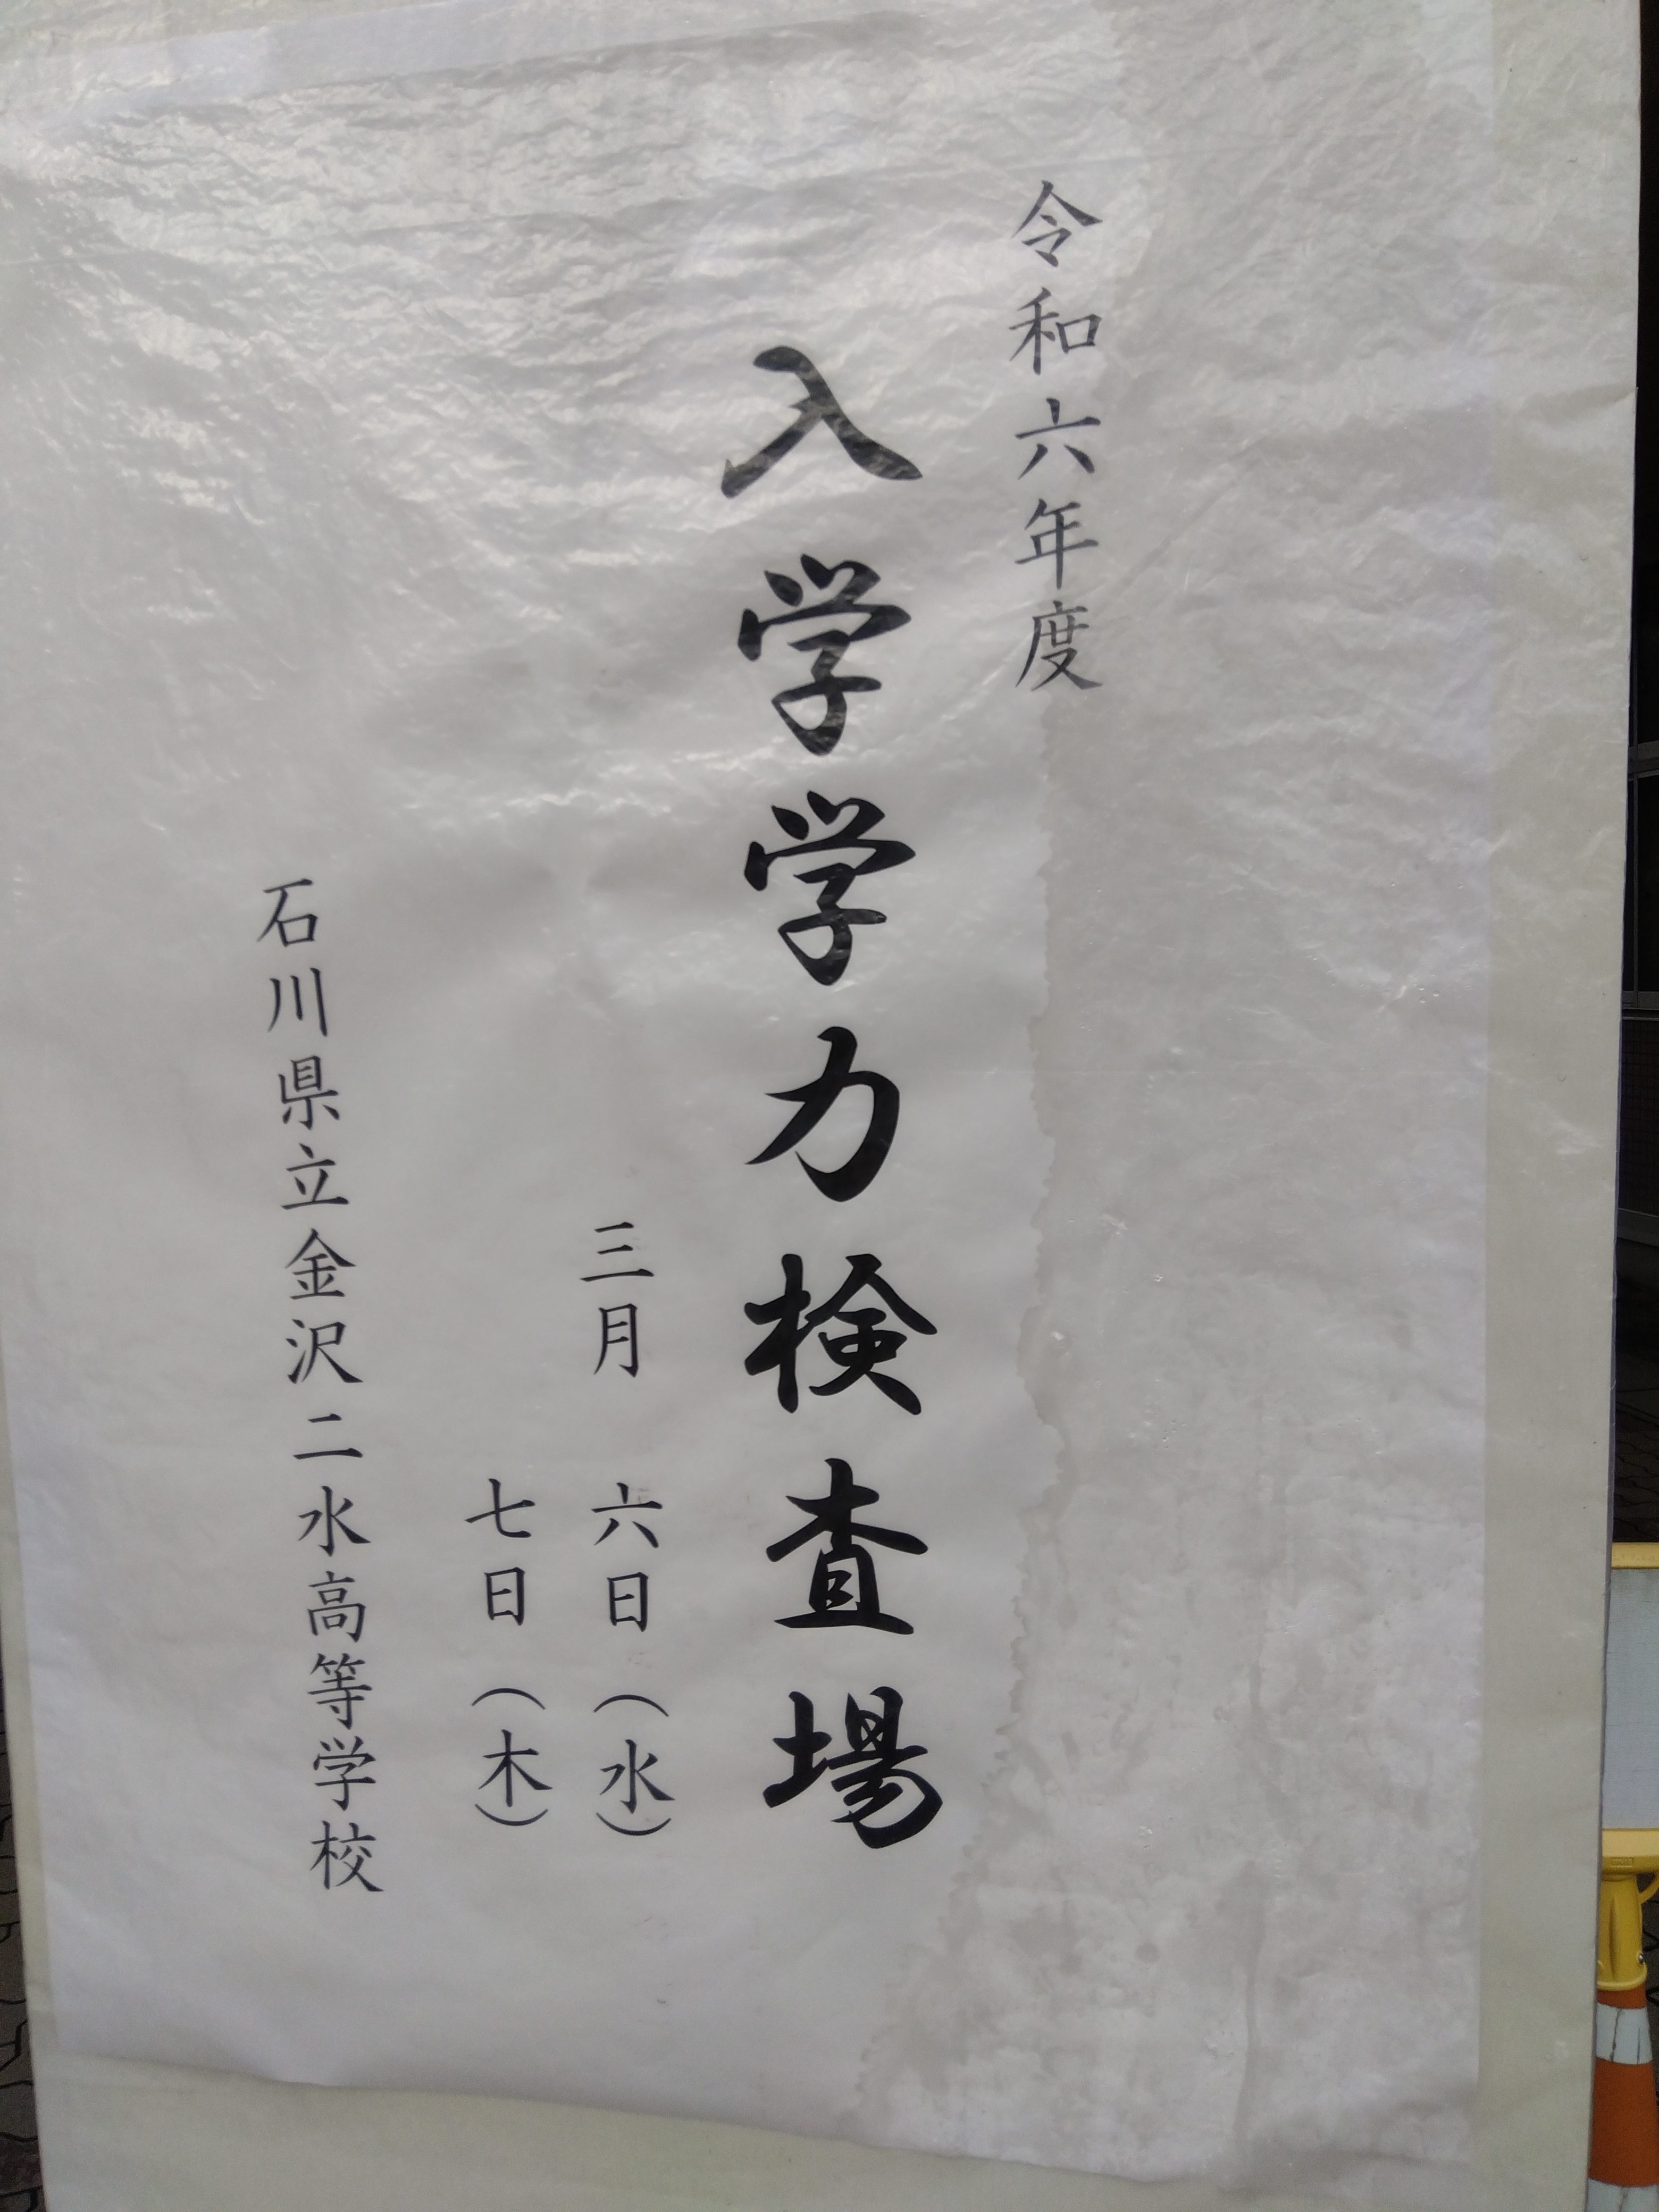 令和六年度
入学学力検査場
三月 六日（水）
七日（木）
石川県立金沢二水高等学校